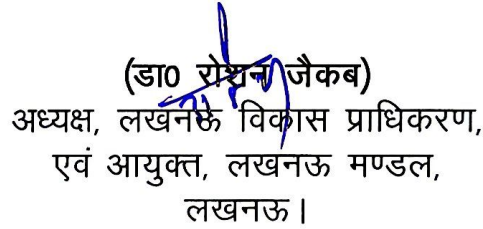 (डा0 रोशन जैकब)
अध्यक्ष, लखनऊ विकास प्राधिकरण,
एवं आयुक्त, लखनऊ मण्डल,
लखनऊ।